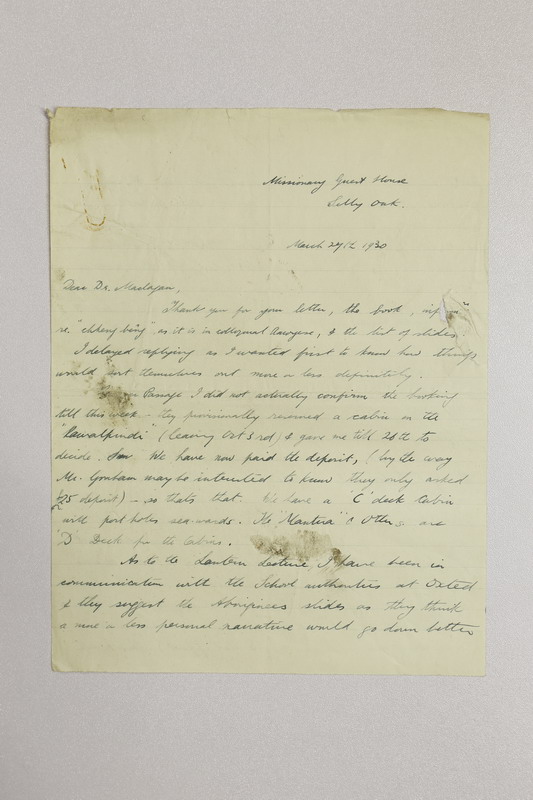 Missionary Guest House
Selly Oak.
March 27th 1930
Dear Dr. Maclagan,
Thank you for your letter, the book,
re. "as it is in colloquial Amoyese, & the list of slides.
I delayed replying as I wanted first to know how things
would sort themselves out more or less definitely.
Passage I did not actually confirm the booking
till this week - they provisionally reserved a cabin on the
"Rawalpindi" (leaving Oct 3rd) & gave me till 28th to
decide. We have now paid the deposit, (by the way
Mr. may be interested to know they only asked
£25 deposit) - so thats that. We have a "C" deck Cabin
with port holes sea-wards. The "Mantua" & Others are
"D" Deck for the Cabins.
As to the Lantern Lecture, I have been in
communication with the School authorities at Oxted
& they suggest the Aborigines slides as they think
a more or less personal narrative would go down better